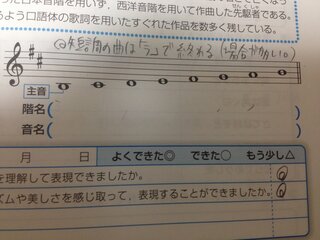 た日本音階を用いず，西洋音階を用いて作曲した先駆者である。
よう口語体の歌詞を用いたすぐれた作品を数多く残している。
短調の曲は「ラ」で終わる(場合が多い。)
主音
階名(
音名(
月 日 よくできた◎ できた○ もう少し△
を理解して表現できましたか。
ズムや美しさを感じ取って，表現することができましたか。